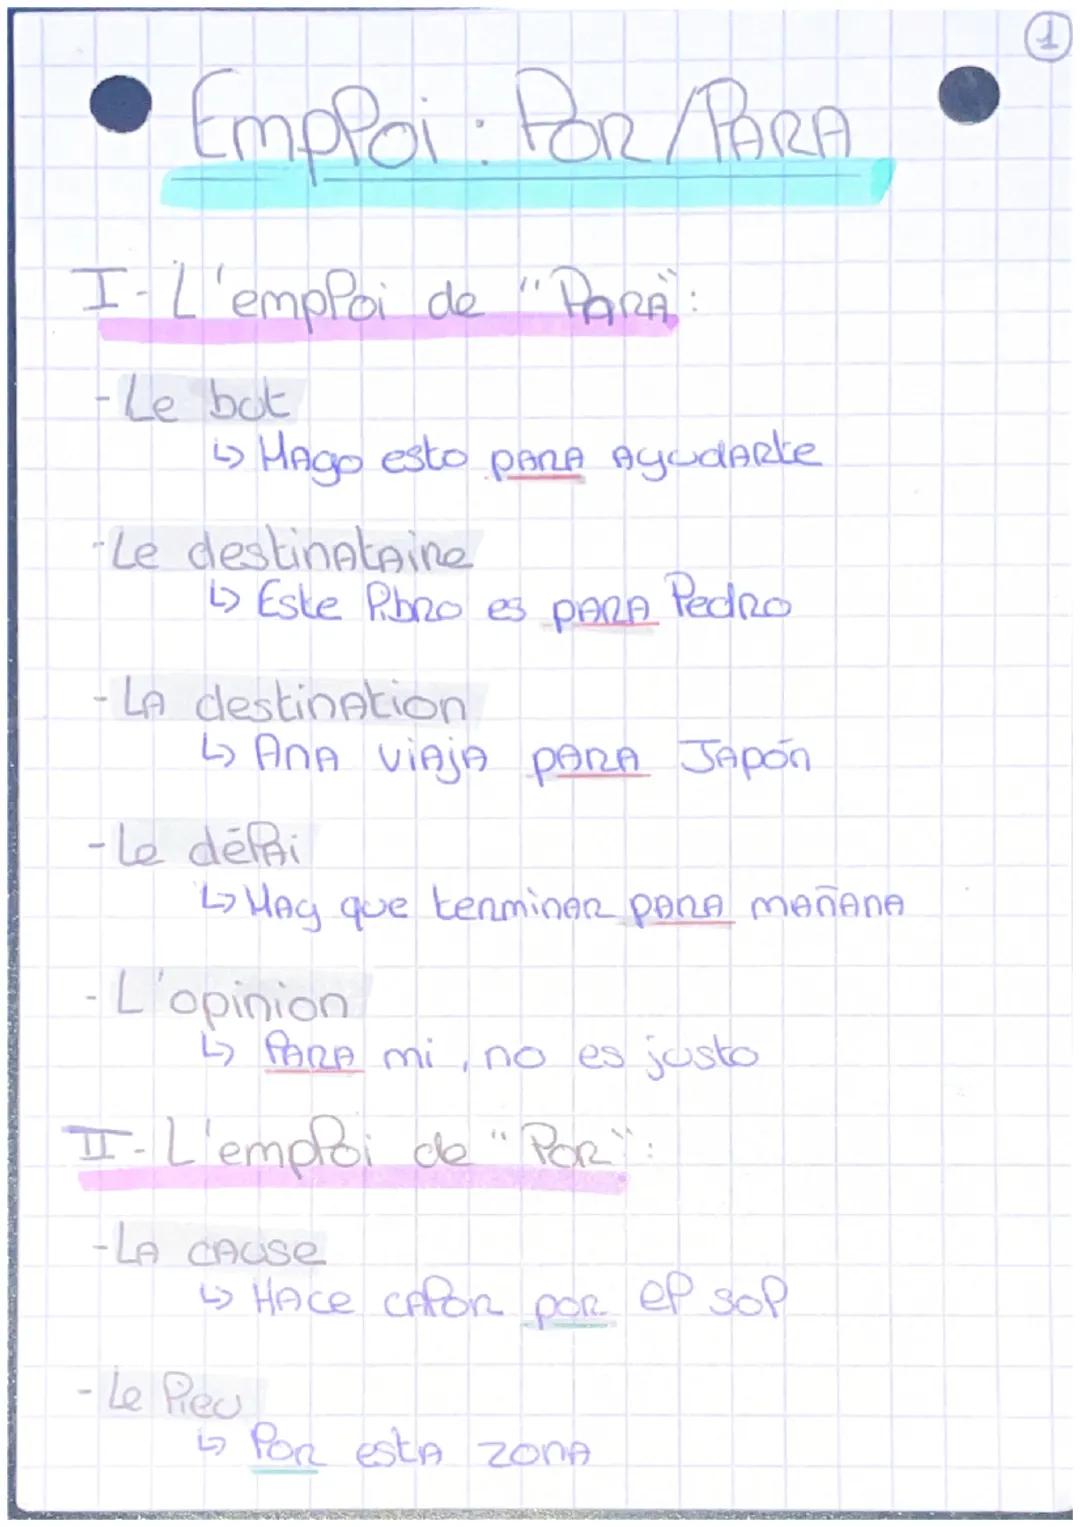 1
Emploi : POR/PARA
I- L'emploi de "PARA":
- Le but
↳ Hago esto para ayudarte
- Le destinataire
↳ Este libro es para Pedro
- La destination
↳ Ana viaja para Japón
- Le délai
↳ Hay que terminar para mañana
- L'opinion
↳ Para mi, no es justo
II- L'emploi de "POR":
- La cause
↳ Hace calor por el sol
- Le lieu
↳ Por esta zona